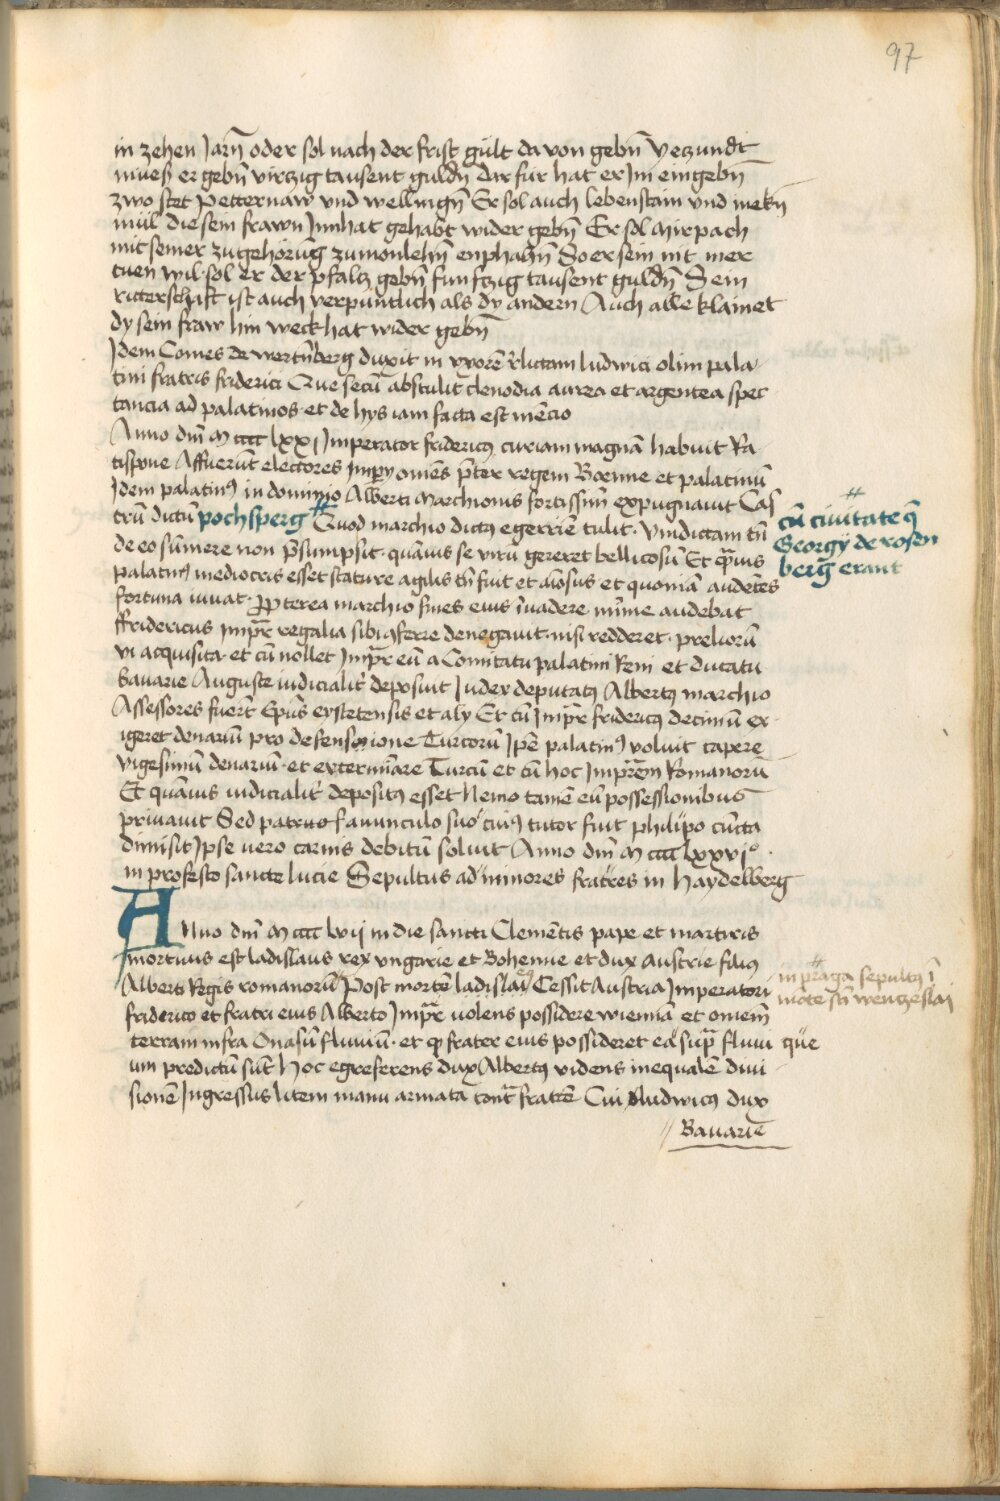 97
in zehen Jarn̄ oder sol nach der frist gült da von gebn̄ Yetzundt
mues er gebn̄ virtzig tausent guldn̄ Dar fur hat er Im eingebn̄
zwo stet Petternaw vnd wellingn̄ Er sol auch lebenstain vnd mekn̄
mül die sein frawn Innhat gehabt wider gebn̄ Er sol Mirpach
mit seiner zugehörūg zu monlehn̄ enphahn̄ So er sein nit mer
tuen wil sol er der pfaltz gebn̄ funftzig tausent guldn̄ Sein
ritterschaft ist auch verpuntlich als dy andern Auch alle klainet
dy sein fraw hin weck hat wider gebn̄
Idem Comes de wertn̄berg duxit in vxorē relictam ludwici olim pala
tini fratris friderici Que secū abstulit clenodia aurea et argentea spec
tancia ad palatinos et de hys iam facta est mēcio
Anno dm̄ M cccc lxxi Imperator fridericꝯ curiam magnā habuit Ra
tispone Affuerūt electores Impy om̄es p̄ter regem Boemie et palatinū
Idem palatinꝯ in dominio Alberti Marchionis fortissim̄ expugnauit Cas
trū dictū pochsperg # Quod marchio dictꝯ egerriē tulit Vindictam tn̄
cū ciuitate q̄
Georgÿ de rosen
berg erant
de eo sūmere non p̄sumpsit quāuis se virū gereret bellicosū Et q̄uis
palatinꝯ mediocris esset stature agilis tn̄ fuit et aīosus et quoniā audētes
fortuna iuuat ꝓpterea marchio fines eius īuadere mīme audebat
ffridericus Imp̄r regalia sibi ꝯferre denegauit nisi redderet preliorū
vi acquisita et cū nollet Imp̄r eū a Comitatu palatini Reni et ducatu
bauarie Auguste iudicialit̄ deposuit Iudex deputatꝯ Albertꝯ marchio
Assessores fuer̄t Ep̄us eystetensis et aly Et cū Imp̄r fridericꝯ decimū ex
igeret denariū pro defensione Turcorū Ip̄e palatinꝯ voluit capere
vigesimū denariū et extermīare Turcū et cū hoc Imp̄rem Romanorū
Et quāuis iudicialit̄ depositꝯ esset Nemo tamē eū possessionibus
priuauit Sed patruo auunculo suo cuiꝯ tutor fuit philipo cūcta
dimisit Ipse vero carnis debitū soluit Anno dm̄ M cccc lxxvjº
in profesto sancte lucie Sepultus ad minores fratres in Haydelberg
Anno dm̄ M cccc lvij in die sancti Clemētis pape et martiris
mortuus est ladislaus rex vngarie et Bohemie et dux Austrie filiꝯ
Alberti Regis romanorū Post mortē ladislai eꝯ Cessit Austria Imperatori
in praga sepultꝯ ī
mōte sn̄ wentzeslai
friderico et fratri eius Alberto Imp̄r uolens possidere wiennā et omem̄
terram infra Onasū fluuiū et qꝫ frater eius possideret ea sup̄ fluui que
um predictū sūt Hoc egre ferens dux Albertꝯ videns inequalē diui
sionē Ingressus litem manu armata cont̄ fratrē Cui ludwicꝯ dux
Bauarie